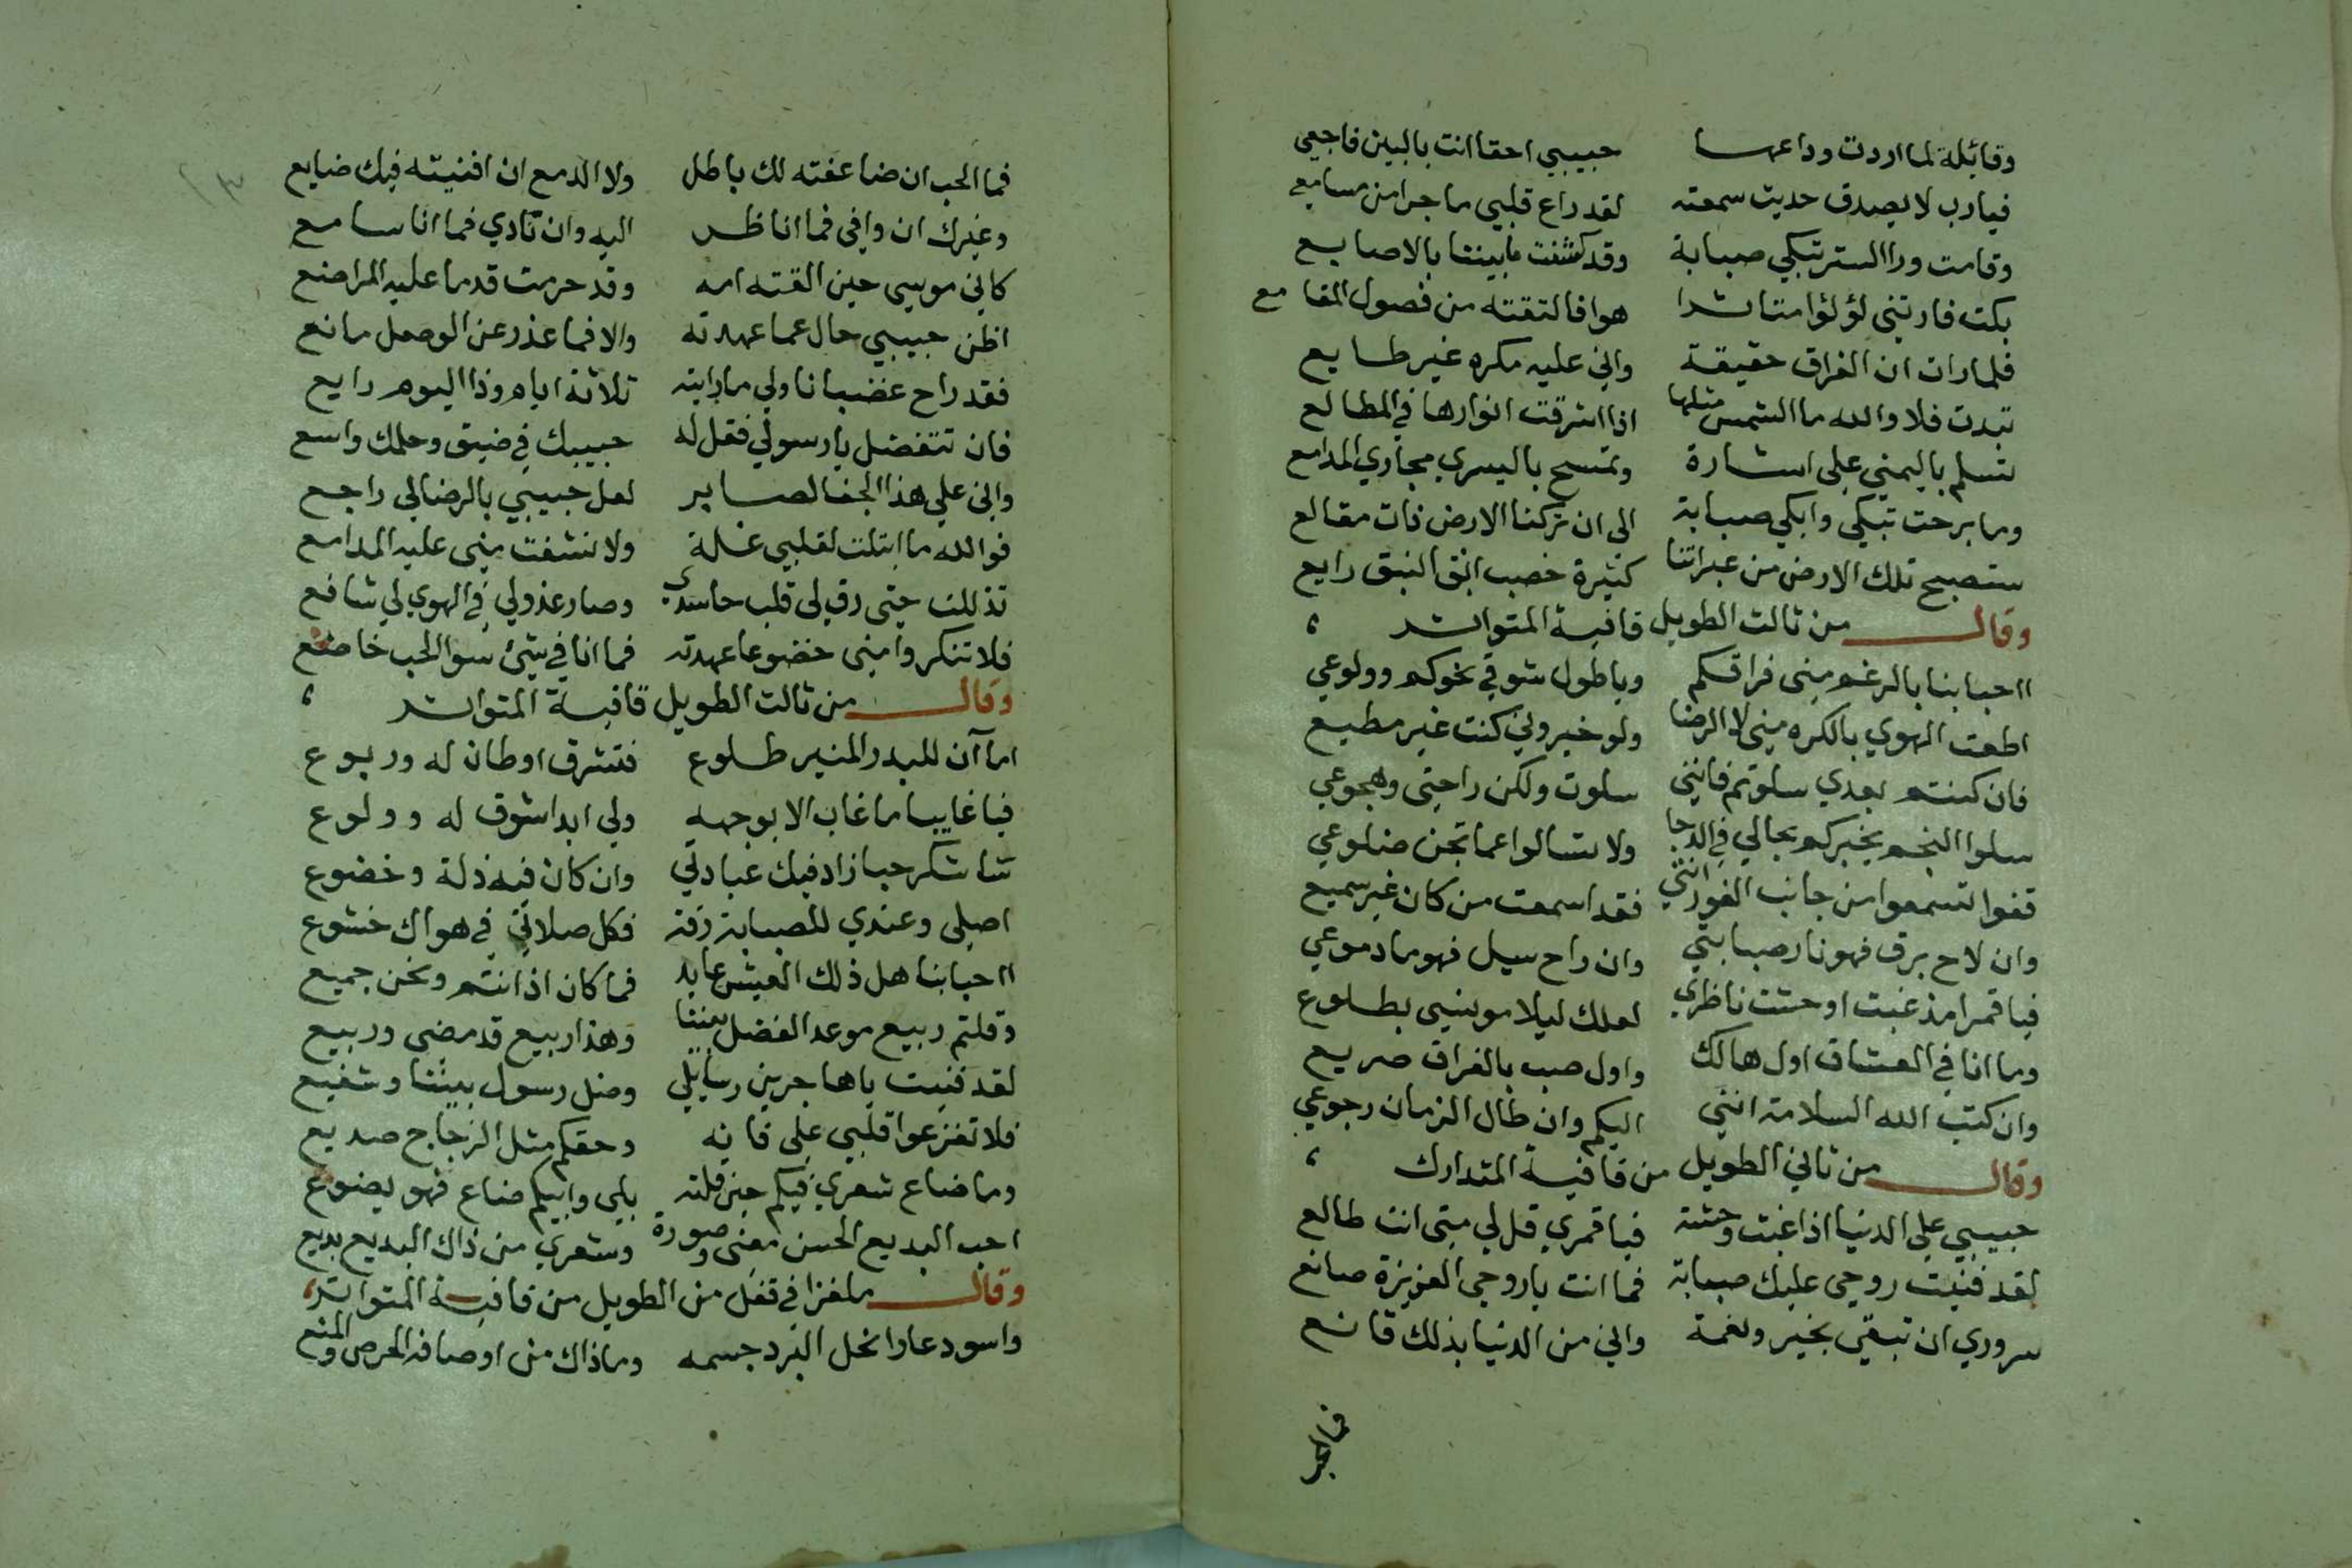 وقائلة لما اردت وداعها حبيبي احقا انت بالبين فاجعي
فيارب لا يصدق حديث سمعته لقد راع قلبي ما جرا من مسامعي
وقامت ورا الستر تبكي صبابة وقد كشفت ما بيننا بالاصابع
بكت فارتني لؤلؤا متناثرا هوا فالتقته من فصول المقامع
فلما رات ان الفراق حقيقة واني عليه مكره غير طايع
تبدت فلا والله ما الشمس مثلها اذا اشرقت انوارها في المطالع
تسلم باليمنى على اشارة وتمسح باليسري مجاري المدامع
وما برحت تبكي وابكي صبابة الى ان تركنا الارض ذات مقالع
ستصبح تلك الارض من عبراتنا كثيرة خصب انق النبق رايع
وقال من ثالث الطويل قافية المتواتر
ااحبابنا بالرغم مني فراقكم وياطول شوقي نحوكم وولوعي
اطعت الهوي بالكره مني لا الرضا ولو خيروني كنت غير مطيع
فان كنتم بعدي سلوتم فانني سلوت ولكن راحتى وهجوعي
سلوا النجم يخبركم بحالي في الدجا ولا تسالوا عما تجن ضلوعي
قفوا تسمعوا من جانب الغور انتي فقد اسمعت من كان غير سميع
وان لاح برق فهو نار صبابتي وان راح سيل فهو ما دموعي
فيا قمرا مذ غبت اوحشت ناظري لعلك ليلا مونسي بطلوع
وما انا في العشاق اول هالك واول صب بالفراق صريع
وان كتب الله السلامة انني اليكم وان طال الزمان رجوعي
وقال من ثاني الطويل من قافية المتدارك
حبيبي على الدنيا اذا غبت وحشة فيا قمري قل لي متى انت طالع
لقد فنيت روحي عليك صبابة فما انت ياروحي العزيزة صانع
سروري ان تبقي بخير ونعمة واني من الدنيا بذلك قانع
فما الحب
فما الحب ان ضاعفته لك باطل ولا الدمع ان افنيته فيك ضايع
وغيرك ان وافي فما انا ناظر اليه وان نادي فما انا سامع
كاني موسي حين القته امه وقد حرمت قدما عليه المراضع
اظن حبيبي حال عما عهدته والا فما عذر عن الوصل مانع
فقد راح غضبانا ولي ما رايته ثلاثة ايام وذا اليوم رايع
فان تتفضل يا رسولي فقل له حبيبك في ضيق وحلمك واسع
واني علي هذا الجفا لصابر لعل حبيبي بالرضا لي راجع
فوالله ما ابتلت لقلبي غلة ولا نشفت مني عليه المدامع
تذللت حتى رق لى قلب حاسدي وصار عذولي في الهوي لي شافع
فلا تنكروا مني خضوعا عهدته فما انا في شئ سوا الحب خاضع
وقال من ثالث الطويل قافية المتواتر
اما آن للبدر المنير طلوع فتشرق اوطان له وربوع
فيا غايبا ما غاب الا بوجهه ولي ابدا شوق له وولوع
ساشكر حبا زاد فيك عبادتي وان كان فيه ذلة وخضوع
اصلى وعندي للصبابة رقة فكل صلاتي في هواك خشوع
ااحبابنا هل ذلك العيش عايد فما كان اذ انتم ونحن جميع
وقلتم ربيع موعد الفضل بيننا وهذا ربيع قد مضى وربيع
لقد فنيت ياهاجرين رسايلي وضل رسول بيننا وشفيع
فلا تفزعوا قلبي على فانه وحقكم مثل الزجاج صديع
وما ضاع شعري فيكم حين قلته بلي وابيكم ضاع فهو يضوع
احب البديع الحسن معنى وصورة وشعري من ذاك البديع بديع
وقال ملغزا في قفل من الطويل من قافية المتواتر
واسود عار انحل البرد جسمه وما ذاك من اوصافه الحرص والمنع